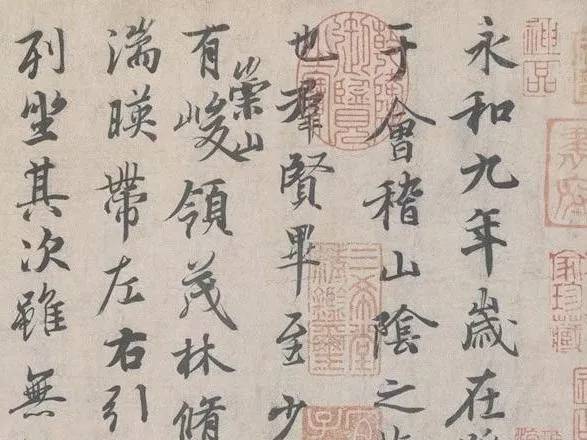 永和九年歲在
于會稽山陰之
也羣賢畢至少
有崇山峻領茂林脩
湍暎帶左右引
列坐其次雖無
神品
三希堂精鑑璽